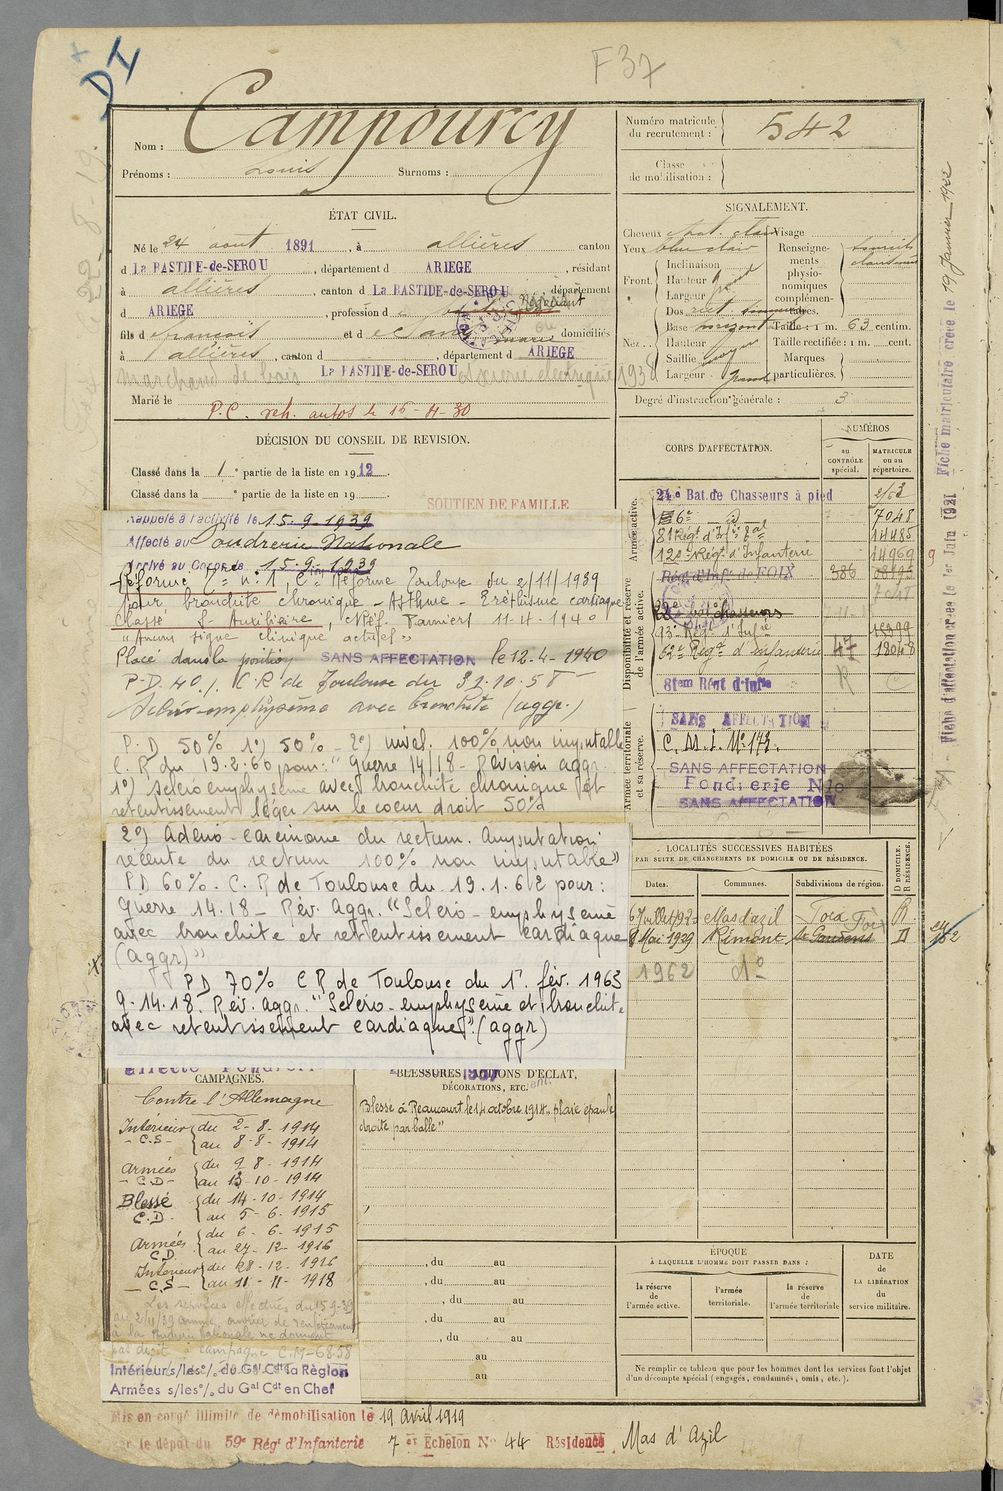 DI
F 37
Nom : Campourcy
Prénoms : Louis Surnoms :
Numéro matricule du recrutement : 542
Classe de mobilisation :
ÉTAT CIVIL.
Né le 24 aout 1891, à allières canton
d La BASTIDE-de-SEROU, département d ARIEGE, résidant
à allières, canton d La BASTIDE-de-SEROU département
d ARIEGE, profession d
fils d françois et d domiciliés
à allières, canton d , département d ARIEGE
marchand de bois La BASTIDE-de-SEROU
Marié le
P.C. veh. autos le 16-4-30
DÉCISION DU CONSEIL DE REVISION.
Classé dans la 1e partie de la liste en 1912.
Classé dans la e partie de la liste en 19
SOUTIEN DE FAMILLE
Rappelé à l'activité le 15-9-1939
Affecté au Poudrerie Nationale
Arrivé au Corps le 15-9-1939
Réforme n° 1, Con Réforme Toulouse du 2/11/1939
pour bronchite chronique - Asthme - Eréthisme cardiaque
Classé S. Auxiliaire, Pamiers 11-4-1940
"Aucun signe clinique actuel"
Placé dans la position SANS AFFECTATION le 12-4-1940
P.D. 40% C.R de Toulouse du
Scléro-emphysème avec bronchite (aggr.)
P.D 50% 1°) 50% - 2°) nivel. 100% non imputable
C.R du 19.2.60 pour: "Guerre 14/18 - Révision aggr.
1°) scléro emphysème avec bronchite chronique et
retentissement léger sur le coeur droit 50%
2°) Adéno-carcinome du rectum. Amputation
récente du rectum 100% non imputable"
PD 60%. C.R de Toulouse du 19.1.62 pour:
Guerre 14.18 - Rév. Aggr. "Scléro-emphysème
avec bronchite et retentissement cardiaque
(aggr)"
PD 70% CR de Toulouse du 1er fév. 1963
g. 14.18. Rev. aggr. "Scléro-emphysème et bronchite
avec retentissement cardiaque". (aggr)
CAMPAGNES.
Contre l'Allemagne
Intérieur - C.S - du 2-8-1914
au 8-8-1914
Armées - C.D - du 9-8-1914
au 13-10-1914
Blessé C.D. du 14-10-1914
au 5-6-1915
Armées C.D. du 6-6-1915
au 27-12-1916
Intérieur - C.S - du 28-12-1916
au 11-11-1918
Les services effectués du 15-9-39
pas droit à campagne C.M-6858
Intérieurs/les% du Gal Cdt la Région
Armées s/les% du Gal Cdt en Chef
BLESSURES, ACTIONS D'ÉCLAT,
DÉCORATIONS, ETC.
Blessé à Beaucourt le 14 octobre 1914, plaie épaule
droite par balle"
, du au
, du au
, du au
, du au
, du au
au
au
SIGNALEMENT.
Cheveux chat. clair Visage
Yeux bleu clair Renseignements physionomiques complémentaires.
Front. Inclinaison
Hauteur
Largeur
Nez. Dos rect.
Base Taille : 1 m. 63 centim.
Hauteur Taille rectifiée : 1 m. cent.
Saillie moyen Marques
Largeur grand particulières.
Degré d'instruction générale : 3
CORPS D'AFFECTATION.
NUMÉROS
AU CONTRÔLE spécial.
MATRICULE ou au répertoire.
Armée active.
Disponibilité et réserve de l'armée active.
Armée territoriale et sa réserve.
24e Bat. de Chasseurs à pied
7048
14485
12e Régt d'Infanterie 14969
Régt d'Infie de FOIX 386
Chasseurs
Régt d'Infanterie 47 18048
81em Régt d'Infie
SANS AFFECTATION
C.M.I. N° 173.
SANS AFFECTATION
SANS AFFECTATION
LOCALITÉS SUCCESSIVES HABITÉES
PAR SUITE DE CHANGEMENTS DE DOMICILE OU DE RÉSIDENCE.
Dates. Communes. Subdivisions de région. D DOMICILE. R RÉSIDENCE.
Mas d'azil Foix R
8 Mai 1929 Rimont St Gaudens D
1962
ÉPOQUE
À LAQUELLE L'HOMME DOIT PASSER DANS :
la réserve de l'armée active.
l'armée territoriale.
la réserve de l'armée territoriale
DATE DE LA LIBÉRATION du service militaire.
Ne remplir ce tableau que pour les hommes dont les services font l'objet
d'un décompte spécial (engagés, condamnés, omis, etc.).
Fiche d'affectation créée le 1er Juin 1921 Fiche matriculaire créée le 19 Janvier 1922
Mis en congé illimité de démobilisation le 19 Avril 1919
par le dépôt du 59e Régt d'Infanterie 7e Echelon N° 44 Résidence Mas d'Azil